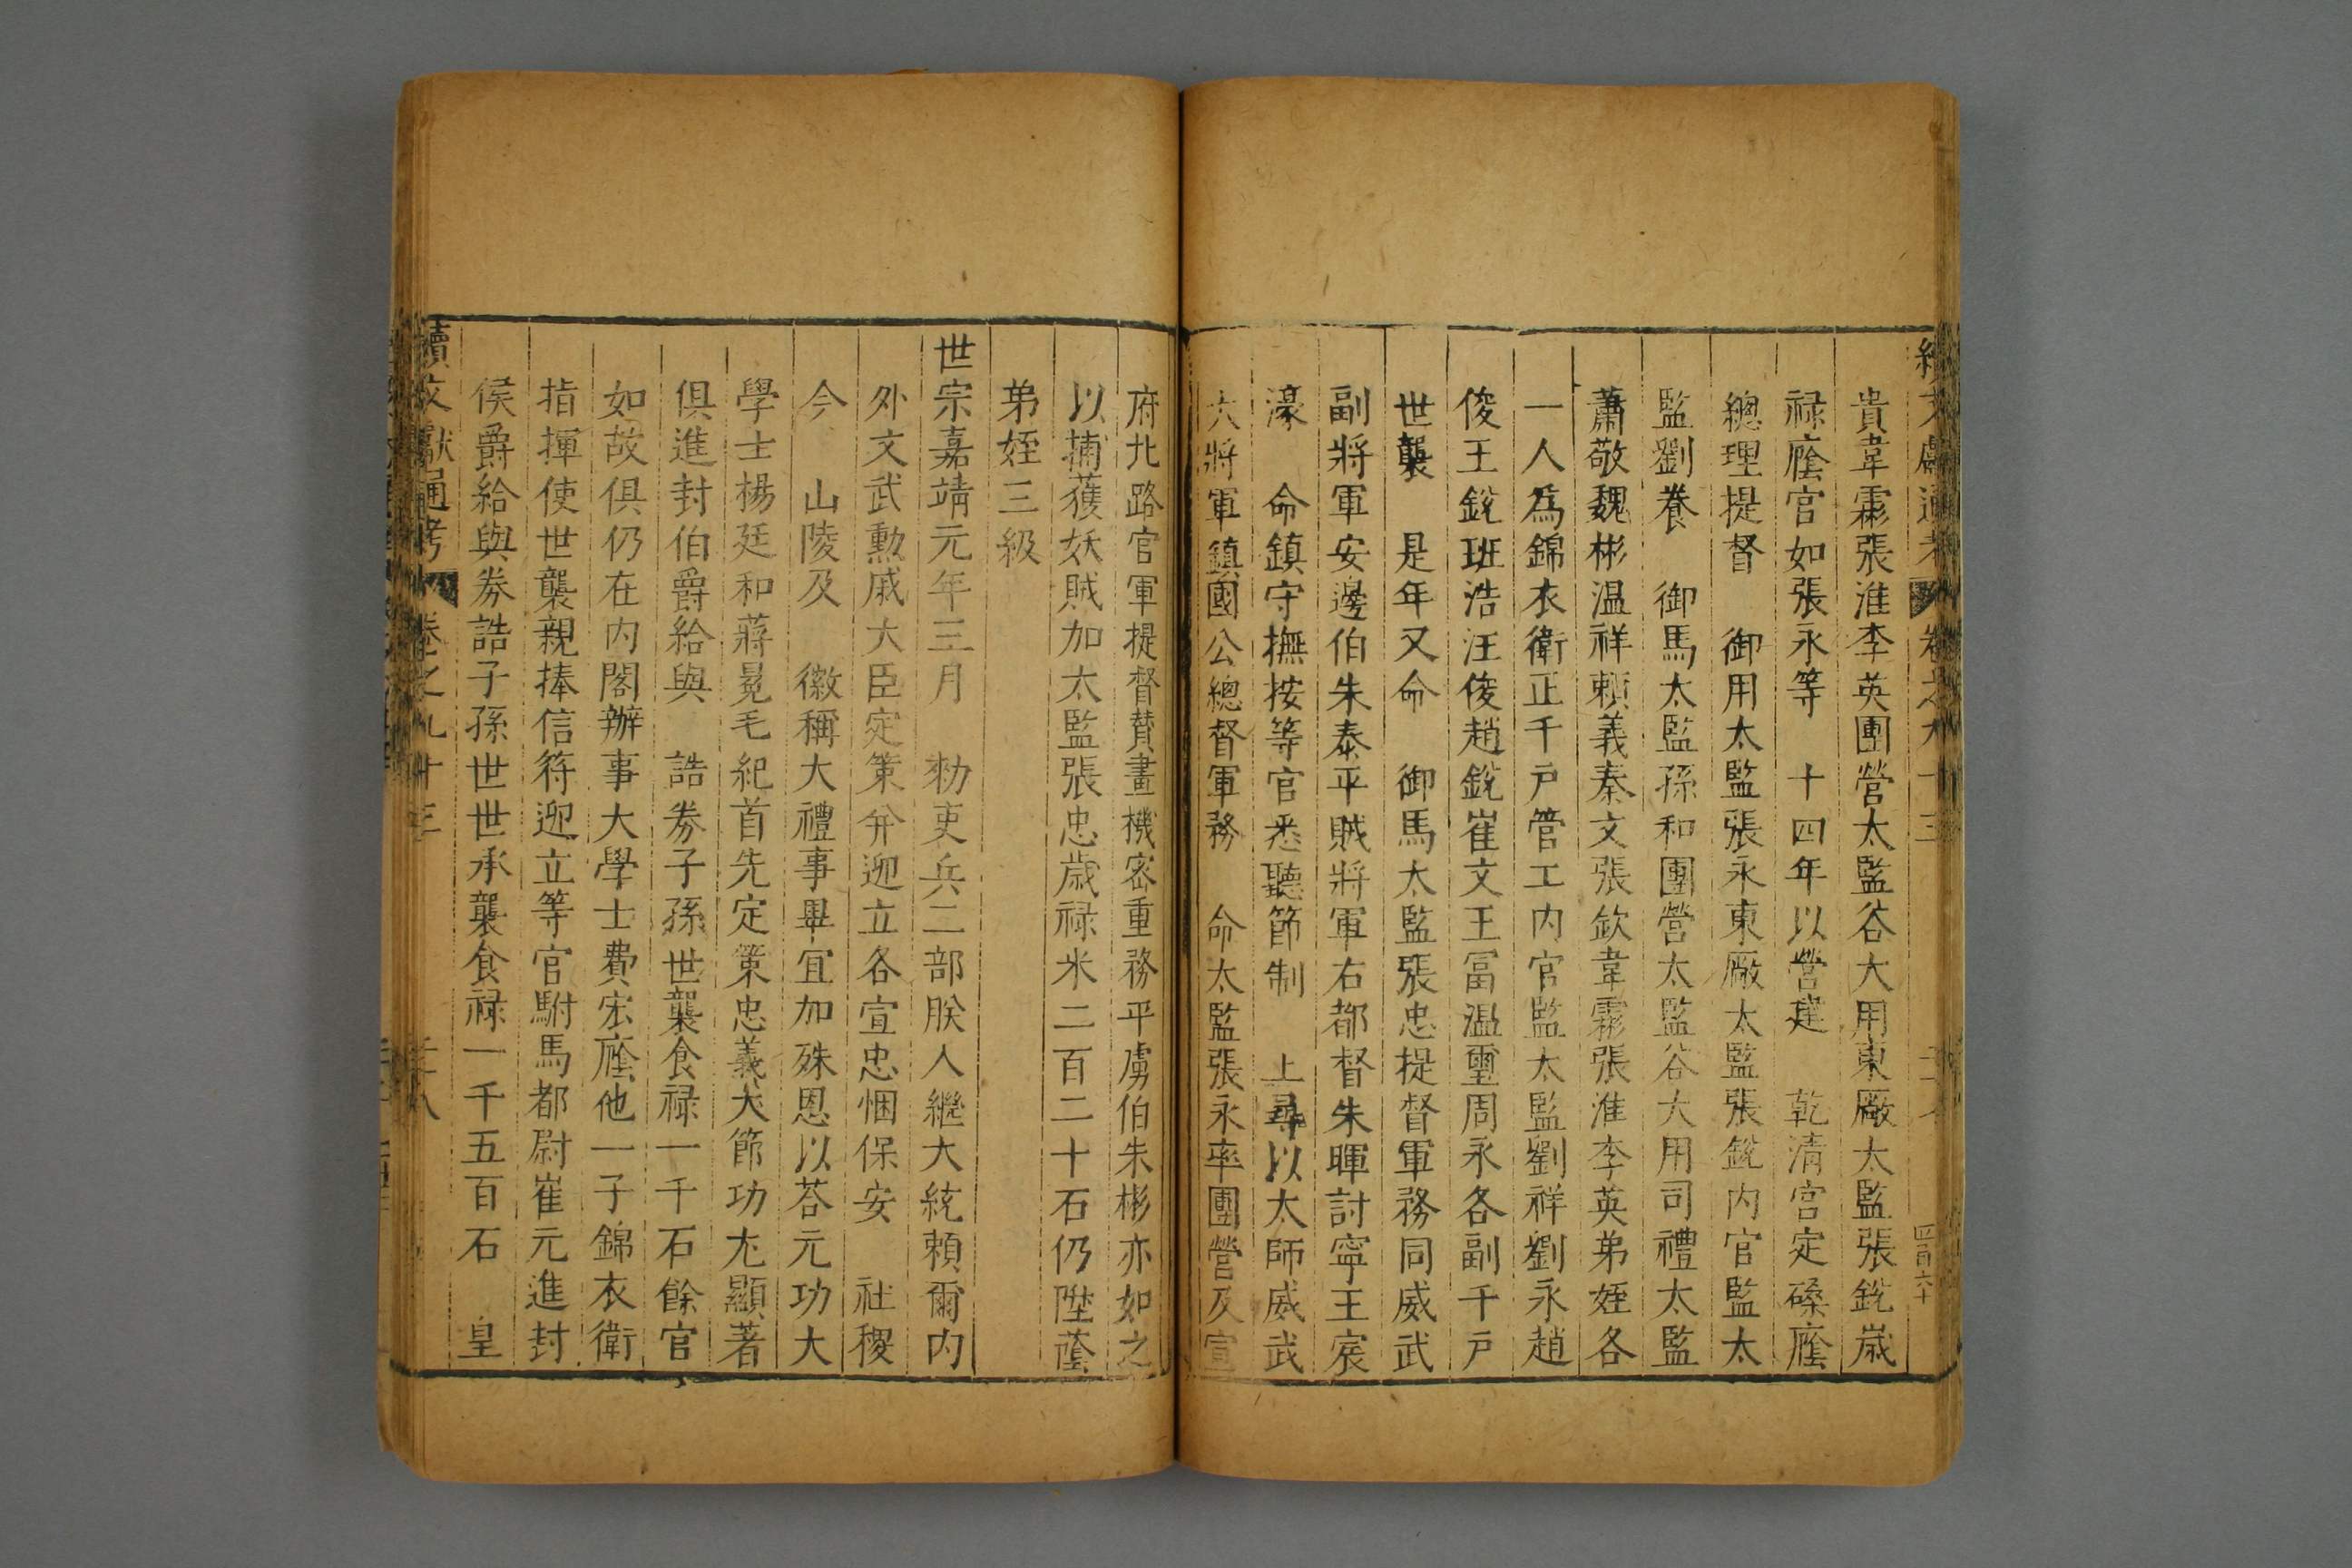 貴韋霦張淮李英團營太監谷大用東廠太監張銳歲
祿廕官如張永等 十四年以營建 乾清宮定磉廕
總理提督 御用太監張永東廠太監張銳内官監太
監劉養 御馬太監孫和團營太監谷大用司禮太監
蕭敬魏彬温祥賴義秦文張欽韋霦張淮李英弟姪各
一人爲錦衣衛正千戶管工内官監太監劉祥劉永趙
俊王銳班浩汪俊趙銳崔文王冨温璽周永各副千戶
世襲 是年又命 御馬太監張忠提督軍務同威武
副將軍安邊伯朱泰平賊將軍右都督朱暉討寧王宸
濠 命鎮守撫按等官悉聽節制 上尋以太師威武
大將軍鎮國公總督軍務 命太監張永率團營及宣
府北路官軍提督賛畫機密重務平虜伯朱彬亦如之
以捕獲妖賊加太監張忠歲祿米二百二十石仍陞廕
弟姪三級
世宗嘉靖元年三月 勑吏兵二部朕入繼大統賴爾内
外文武勲戚大臣定策并迎立各宣忠悃保安 社稷
今 山陵及 徽稱大禮事畢宜加殊恩以荅元功大
學士楊廷和蔣冕毛紀首先定策忠義大節功尤顯著
俱進封伯爵給與 誥券子孫世襲食祿一千石餘官
如故俱仍在内閣辦事大學士費宏廕他一子錦衣衛
指揮使世襲親捧信符迎立等官駙馬都尉崔元進封
侯爵給與券誥子孫世世承襲食祿一千五百石 皇
續文獻通考 卷之九十三 二十八